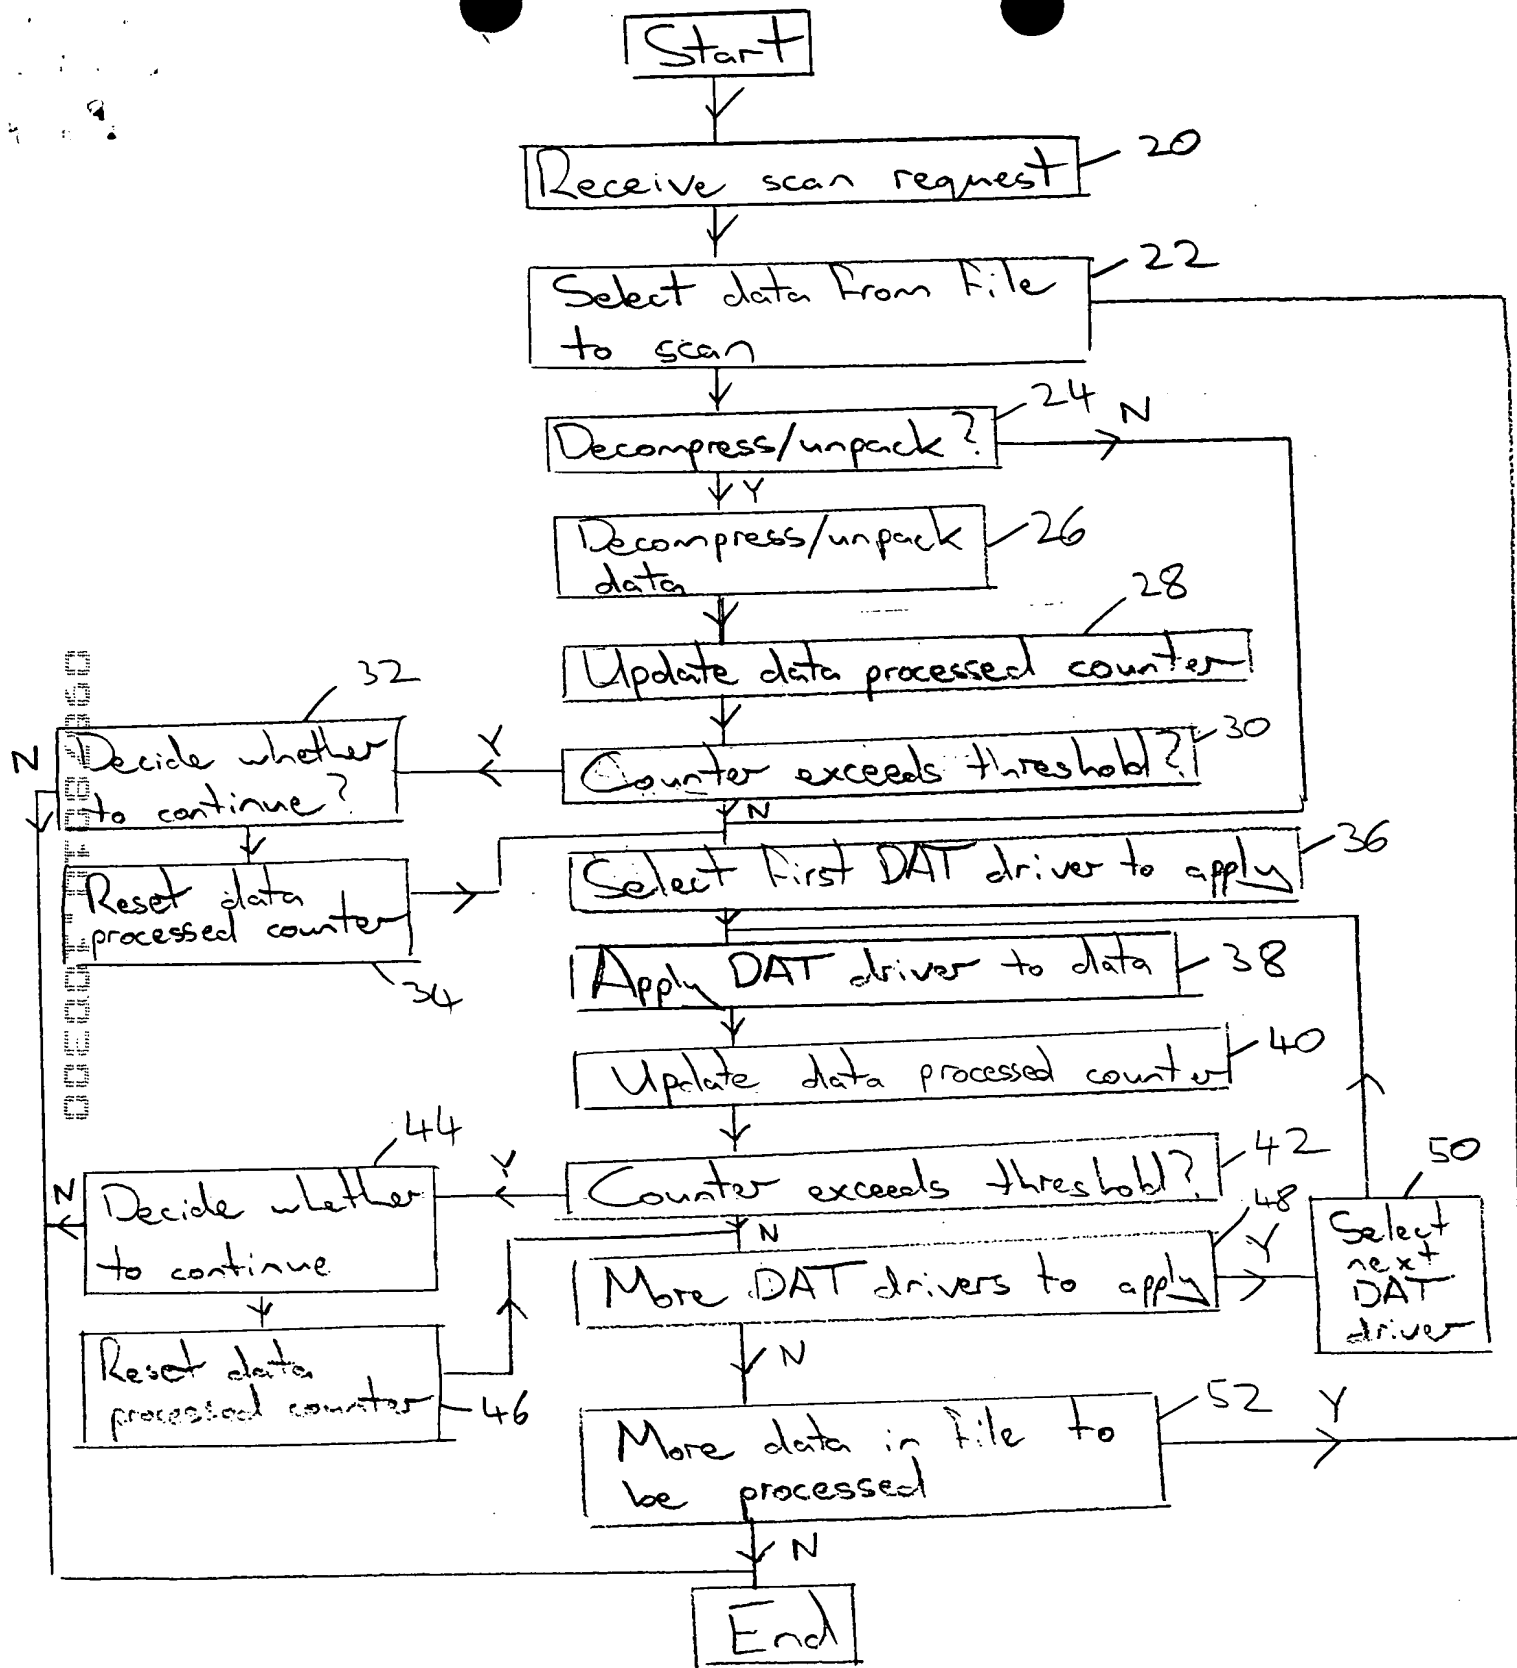 Start
Receive scan request
20
Select data from file
to scan
22
Decompress/unpack?
24
N
Y
Decompress/unpack
data
26
28
Update data processed counter
32
N
Decide whether
to continue?
Y
Counter exceeds threshold?
30
N
Select first DAT driver to apply
36
Reset data
processed counter
34
Apply DAT driver to data
38
Update data processed counter
40
44
N
Decide whether
to continue
Y
Counter exceeds threshold?
42
N
48
More DAT drivers to apply
Y
50
Select
next
DAT
driver
Reset data
processed counter
46
N
More data in file to
be processed
52
Y
N
End